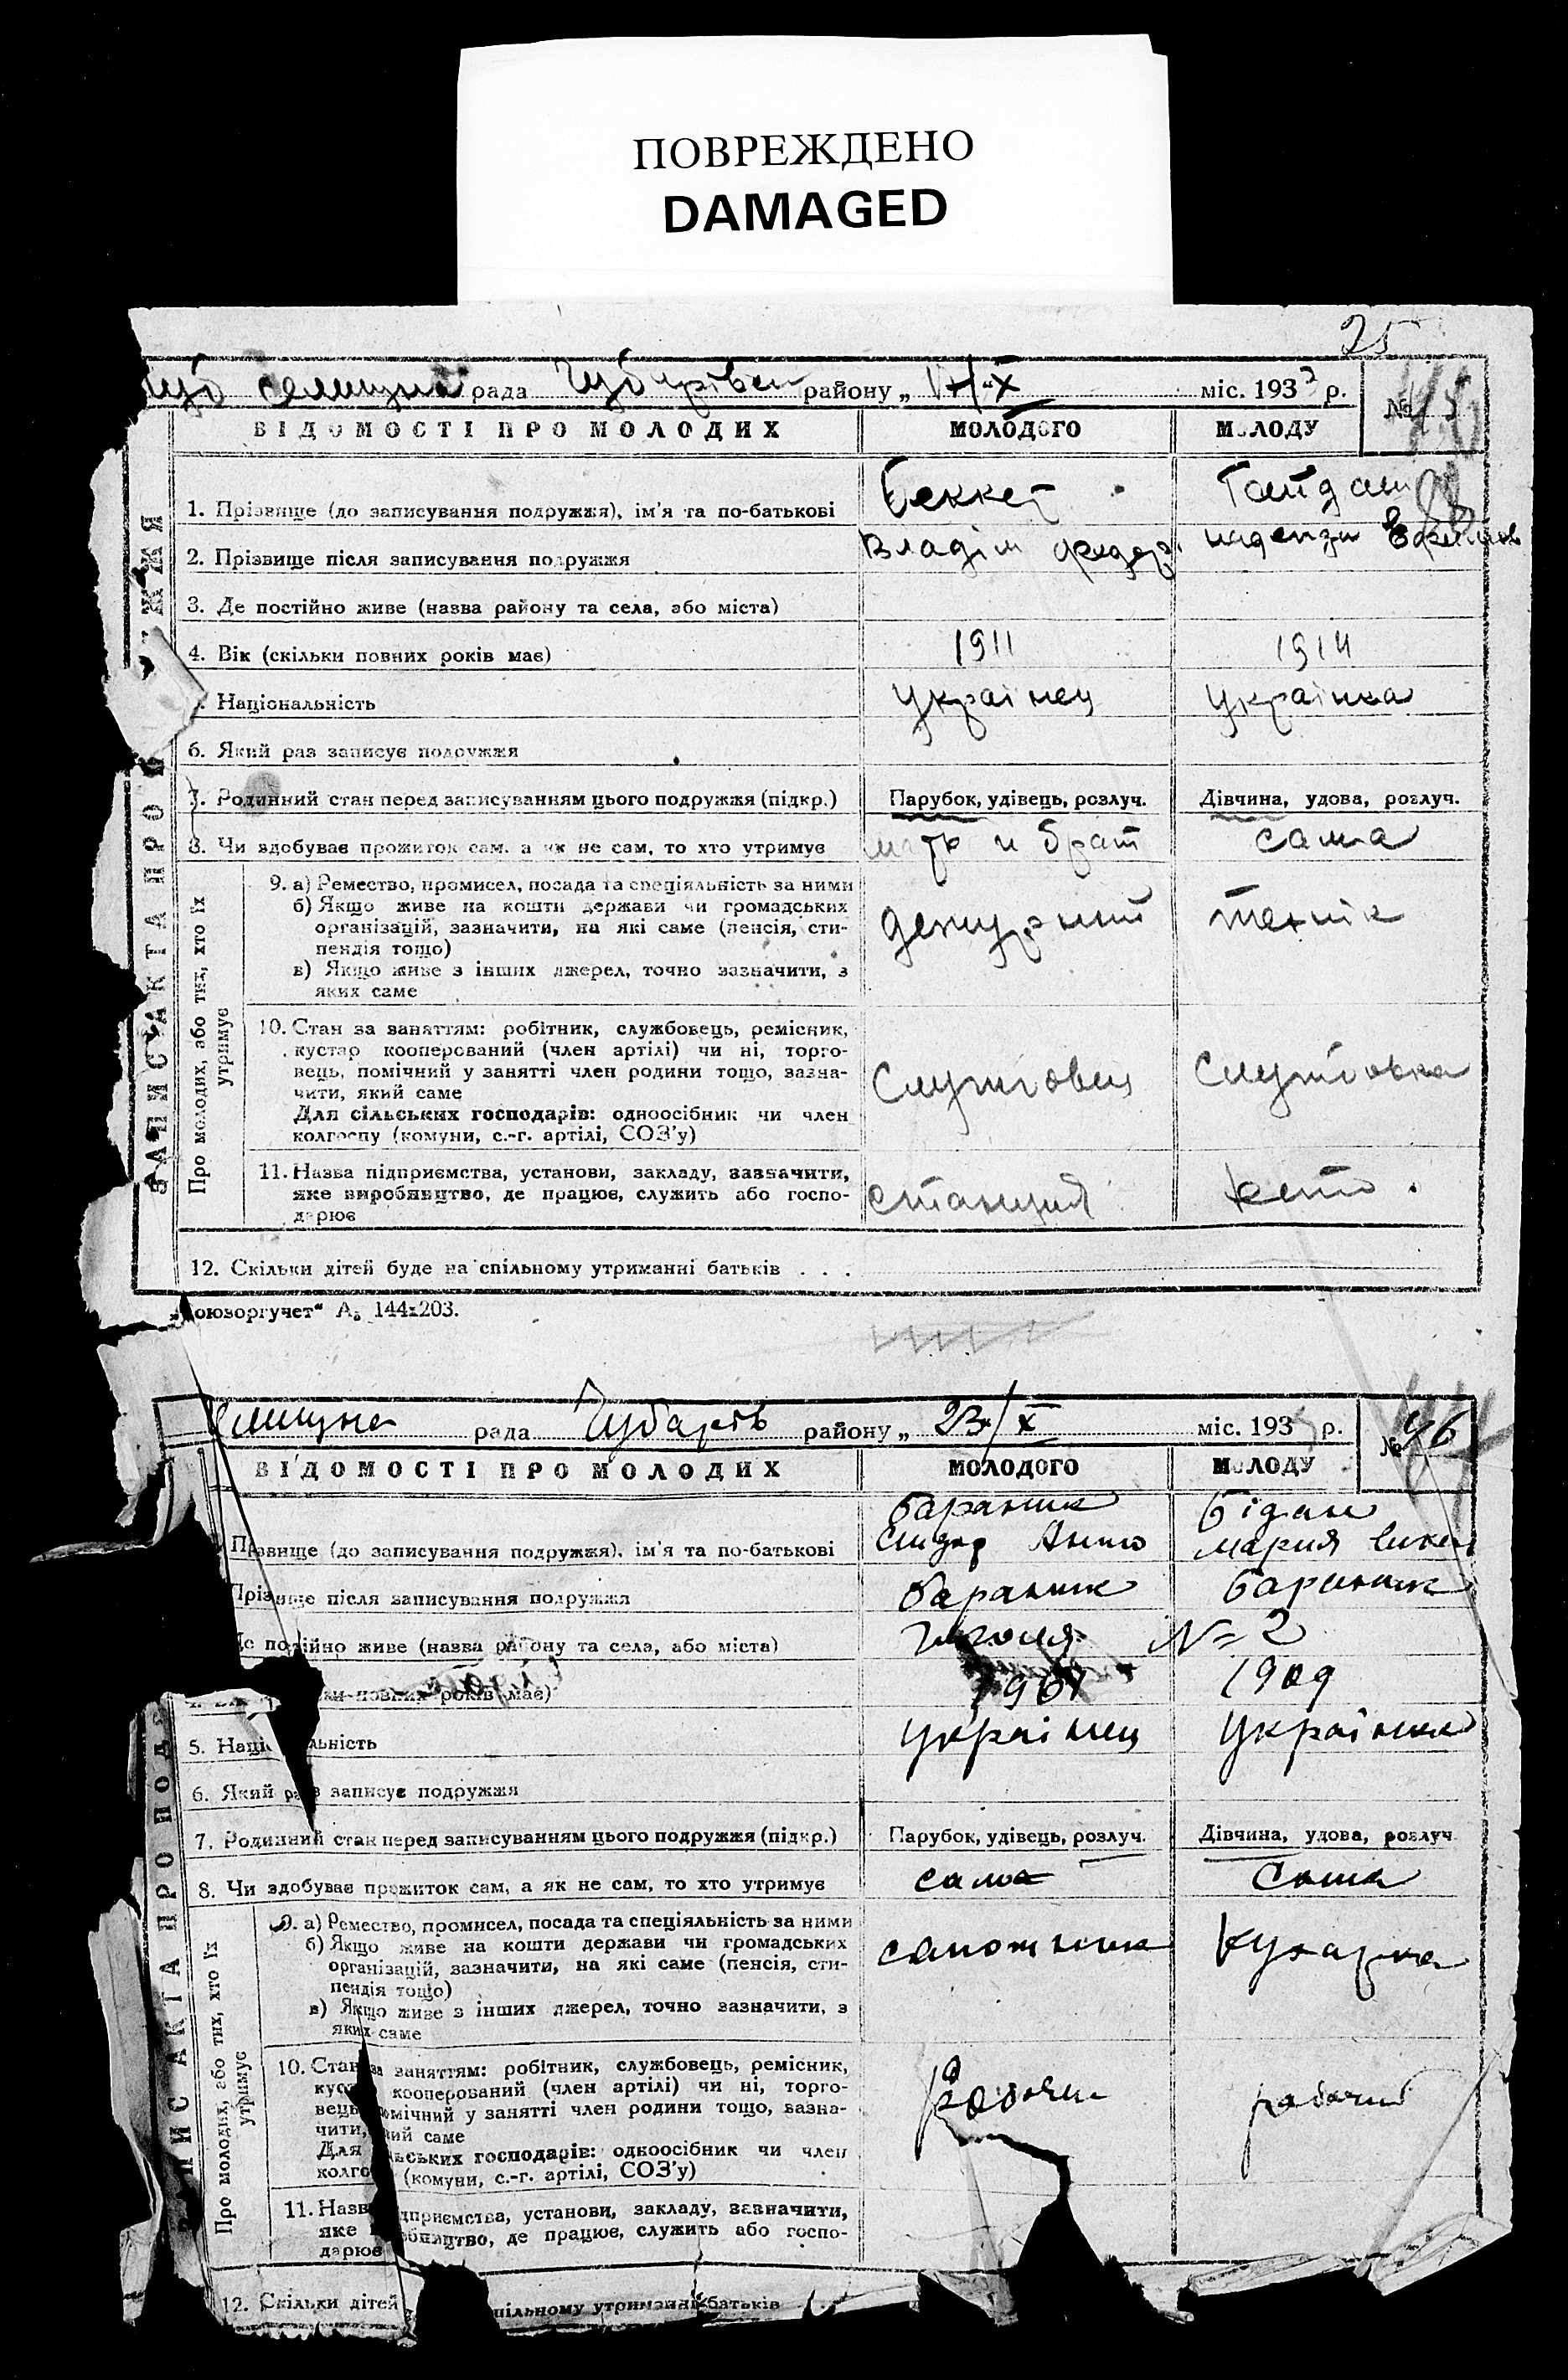 ПОВРЕЖДЕНО
DAMAGED
25
рада району „ Х міс. 1933 р.
№ 45
ВІДОМОСТІ ПРО МОЛОДИХ МОЛОДОГО МОЛОДУ
1. Прізвище (до записування подружжя), ім'я та по-батькові Беккет Гайдаш
2. Прізвище після записування подружжя Владім Федор
3. Де постійно живе (назва району та села, або міста)
4. Вік (скільки повних років має) 1911 1914
Національність Українец Українка
6. Який раз записує подружжя
7. Родинний стан перед записуванням цього подружжя (підкр.) Парубок, удівець, розлуч. Дівчина, удова, розлуч.
8. Чи здобуває прожиток сам, а як не сам, то хто утримує мать и брат сама
ЗАПИС АКТА ПРО
Про молодих, або тих, хто їх
утримує
9. а) Ремество, промисел, посада та спеціяльність за ними
б) Якщо живе на кошти держави чи громадських
організацій, зазначити, на які саме (пенсія, сти-
пендія тощо)
в) Якщо живе з інших джерел, точно зазначити, з
яких саме
дежурний технік
10. Стан за заняттям: робітник, службовець, ремісник,
кустар кооперований (член артілі) чи ні, торго-
вець, помічний у занятті член родини тощо, зазна-
чити, який саме
Для сільських господарів: одноосібник чи член
колгоспу (комуни, с.-г. артілі, СОЗ'у)
11. Назва підприємства, установи, закладу, зазначити,
яке виробництво, де працює, служить або госпо-
дарює
станция
12. Скільки дітей буде на спільному утриманні батьків . . .
оюзоргучет" А₅ 144х203.
рада Чубарів району „ 23/Х міс. 193 р.
№ 46
ВІДОМОСТІ ПРО МОЛОДИХ МОЛОДОГО МОЛОДУ
Бараник Бідан
Прізвище (до записування подружжя), ім'я та по-батькові Сидор Анто Мария
Прізвище після записування подружжя Бараник Бараник
Де постійно живе (назва району та села, або міста) Гоголя N= 2
ки повних років має) 1909
5. Національність Українец Українка
6. Який раз записує подружжя
7. Родинний стан перед записуванням цього подружжя (підкр.) Парубок, удівець, розлуч. Дівчина, удова, розлуч
8. Чи здобуває прожиток сам, а як не сам, то хто утримує сама сама
ПИС АКТА ПРО ПОД
Про молодих, або тих, хто їх
утримує
9. а) Ремество, промисел, посада та спеціяльність за ними
б) Якщо живе на кошти держави чи громадських
організацій, зазначити, на які саме (пенсія, сти-
пендія тощо)
в) Якщо живе з інших джерел, точно зазначити, з
яких саме
сапожник Кухарка
10. Стан за заняттям: робітник, службовець, ремісник,
кооперований (член артілі) чи ні, торго-
вець, помічний у занятті член родини тощо, зазна-
чити, який саме
Для сільських господарів: одноосібник чи член
колго (комуни, с.-г. артілі, СОЗ'у)
рабочий
11. Назва підприємства, установи, закладу, зазначити,
яке виробництво, де працює, служить або госпо-
дарює
12. Скільки дітей спільному утриманні батьків . .